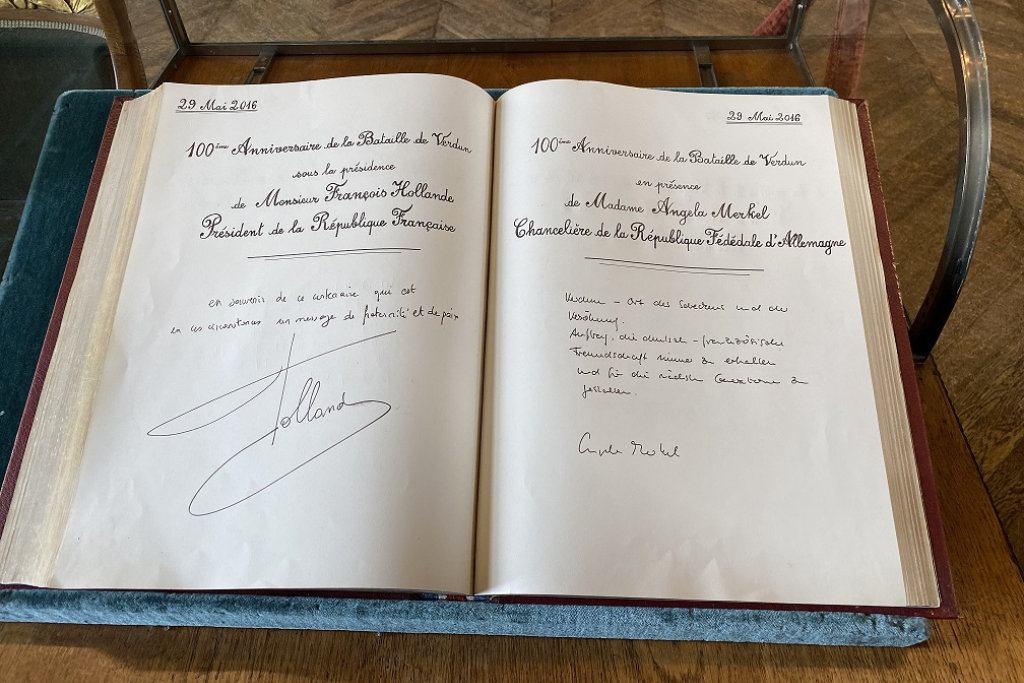 29 Mai 2016
100ème Anniversaire de la Bataille de Verdun
sous la présidence
de Monsieur François Hollande
Président de la République Française
en souvenir de ce centenaire qui est
en ces circonstances un message de fraternité et de paix
Hollande
29 Mai 2016
100ème Anniversaire de la Bataille de Verdun
en présence
de Madame Angela Merkel
Chancelière de la République Fédédale d'Allemagne
Verdun – Ort des Gedenkens und der
Versöhnung.
Auftrag, die deutsch – französische
Freundschaft immer zu erhalten
und für die nächste Generation zu
gestalten.
Angela Merkel